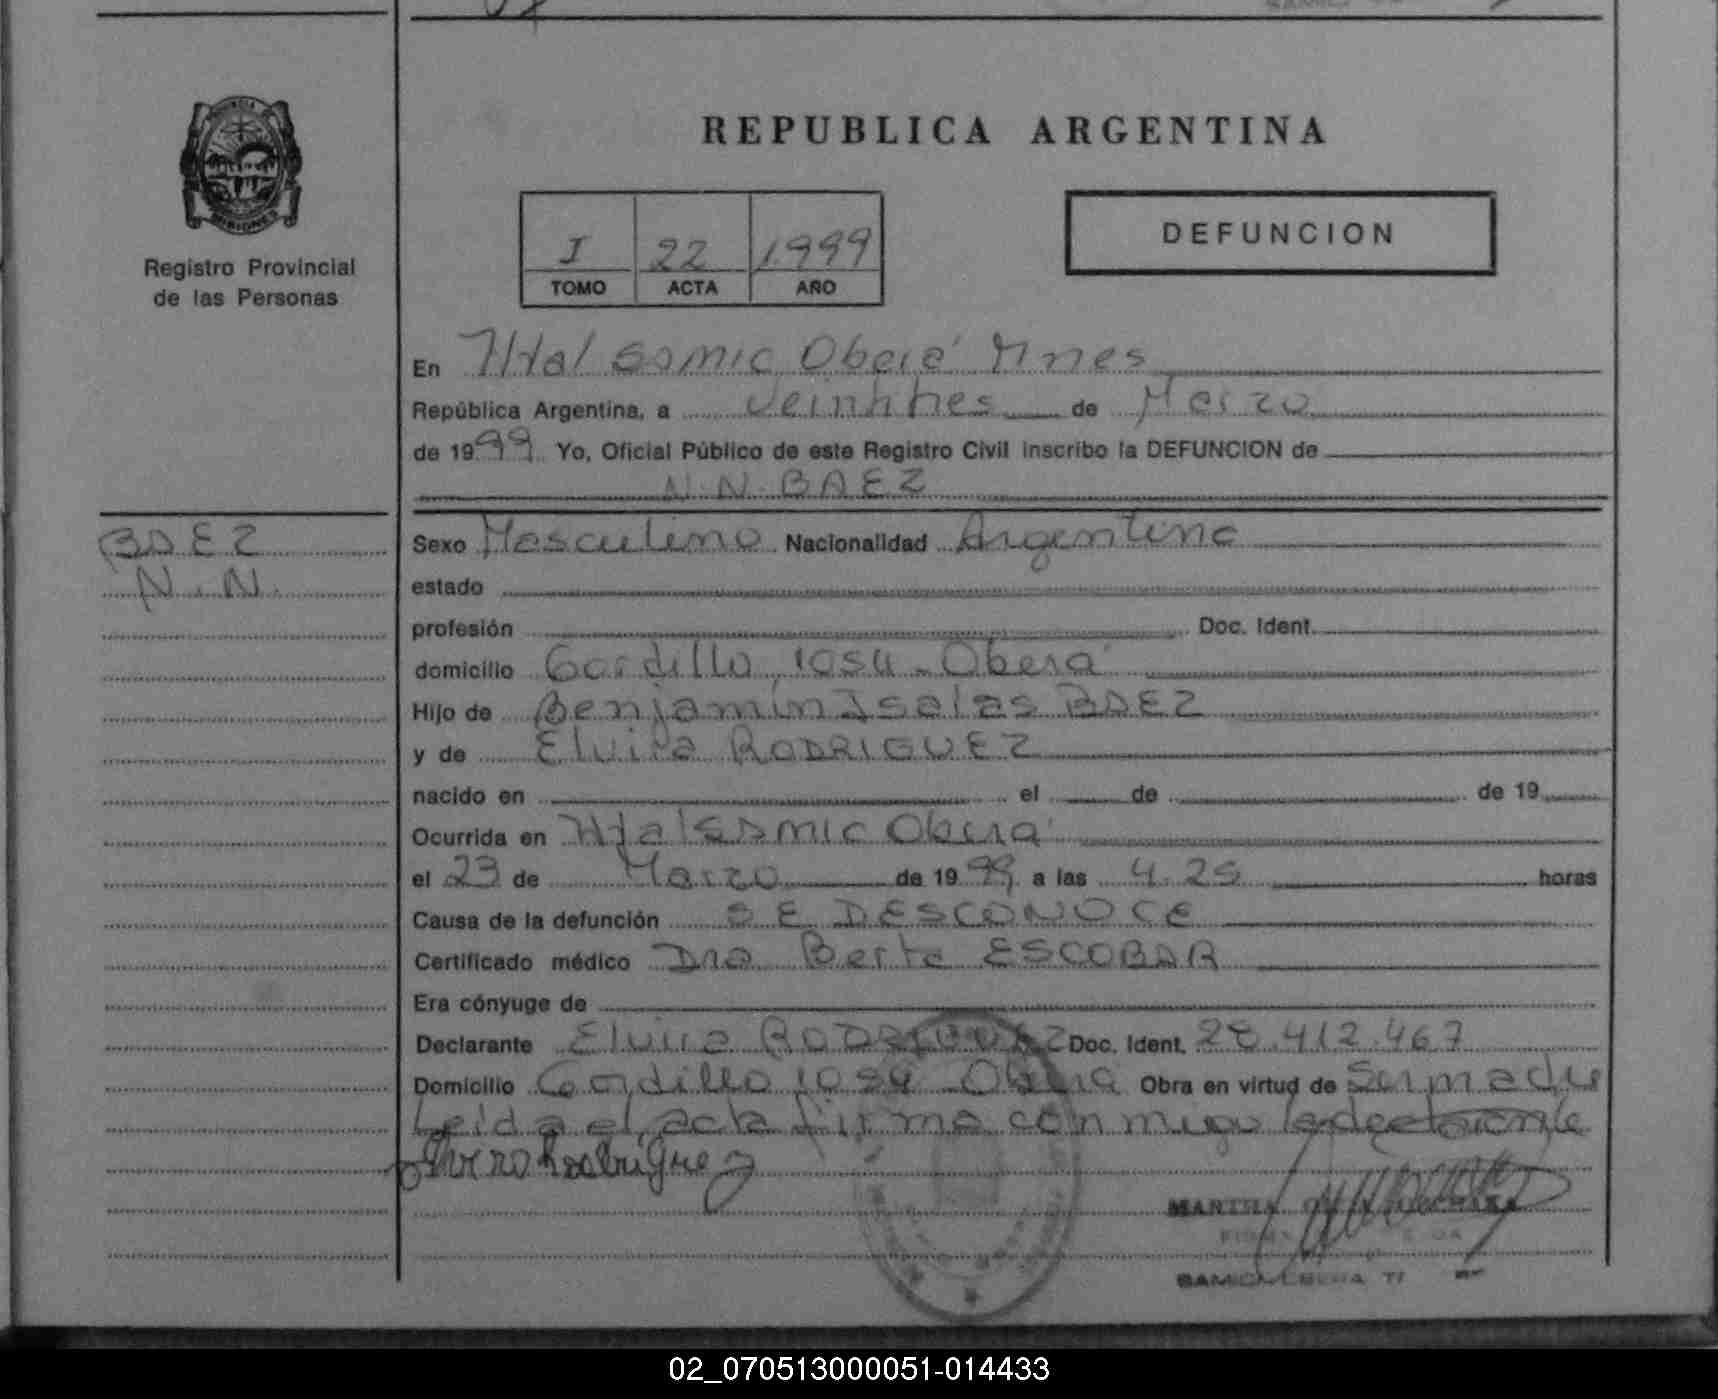 REPUBLICA ARGENTINA
PROVINCIA
MISIONES
Registro Provincial
de las Personas
I 22 1.999
TOMO ACTA AÑO
DEFUNCION
En Htal Samic Oberá Mnes
República Argentina, a veintitres de Marzo
de 1999 Yo, Oficial Público de este Registro Civil inscribo la DEFUNCION de
N.N. BAEZ
BAEZ
N.N.
Sexo Masculino Nacionalidad Argentina
estado
profesión Doc. Ident.
domicilio Gordillo 1054 - Oberá
Hijo de Benjamín Isaias BAEZ
y de Elvira RODRIGUEZ
nacido en el de de 19
Ocurrida en Htal Samic Oberá
el 23 de Marzo de 1999 a las 4.25 horas
Causa de la defunción SE DESCONOCE
Certificado médico Dra Berta ESCOBAR
Era cónyuge de
Declarante Elvira RODRIGUEZ Doc. Ident. 28.412.467
Domicilio Gordillo 1054 Oberá Obra en virtud de Ser madre
Leida el acta firma conmigo la declarante
Elvira Rodriguez
MARTHA
SAMIC OBERA
02_070513000051-014433